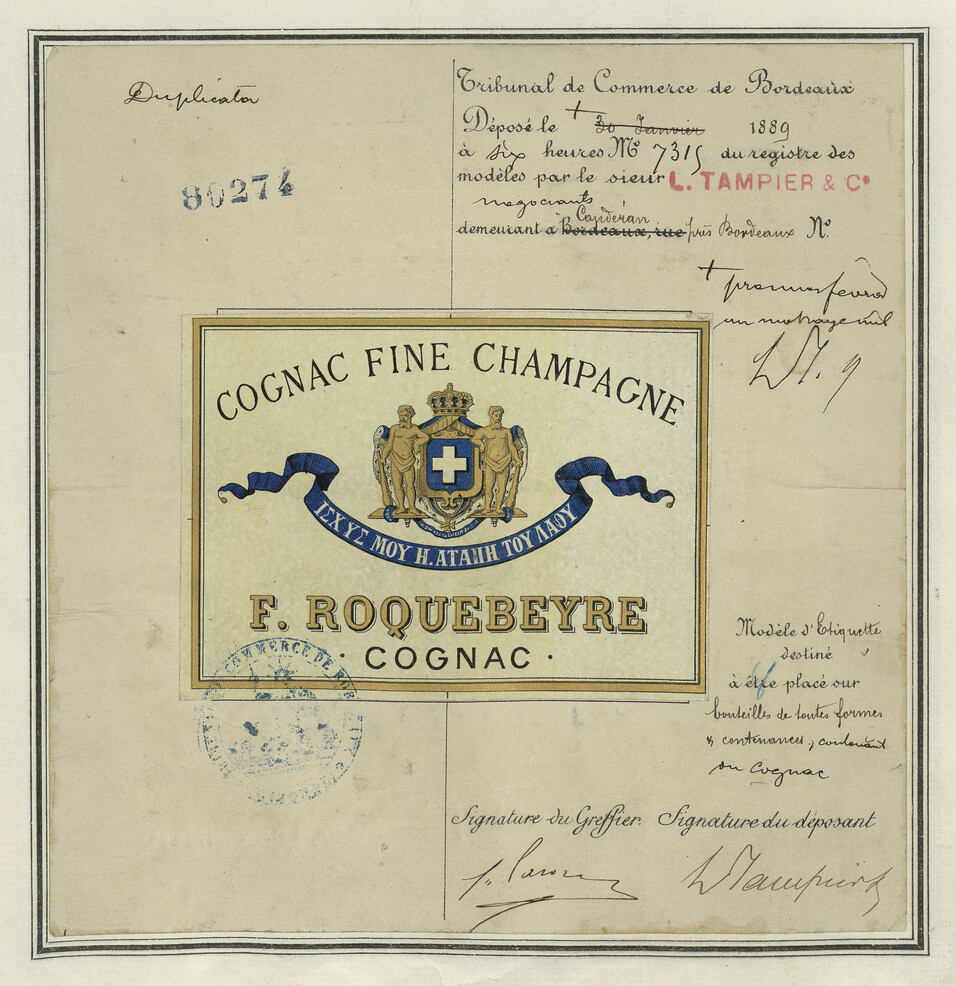 Duplicata
80274
Tribunal de Commerce de Bordeaux
Déposé le + 30 Janvier 1889
à six heures Nº 7315 du registre des
modèles par le sieur L. TAMPIER & Cº
negociants
Caudéran
demeurant à Bordeaux, rue près Bordeaux Nº
+ premier février
un mot rayé nul
COGNAC FINE CHAMPAGNE
ΙΣΧΥΣ ΜΟΥ Η. ΑΤΑΠΗ ΤΟΥ ΛΑΟΥ
F. ROQUEBEYRE
· COGNAC ·
COMMERCE DE BOR
Modèle d'Etiquette
destiné
à être placé sur
bouteilles de toutes formes
& contenances, contenant
du Cognac
Signature du Greffier. Signature du déposant
LTampier